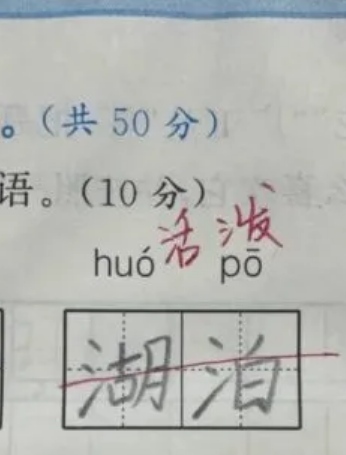 。(共 50 分)
语。(10 分)
活泼
huó pō
湖泊